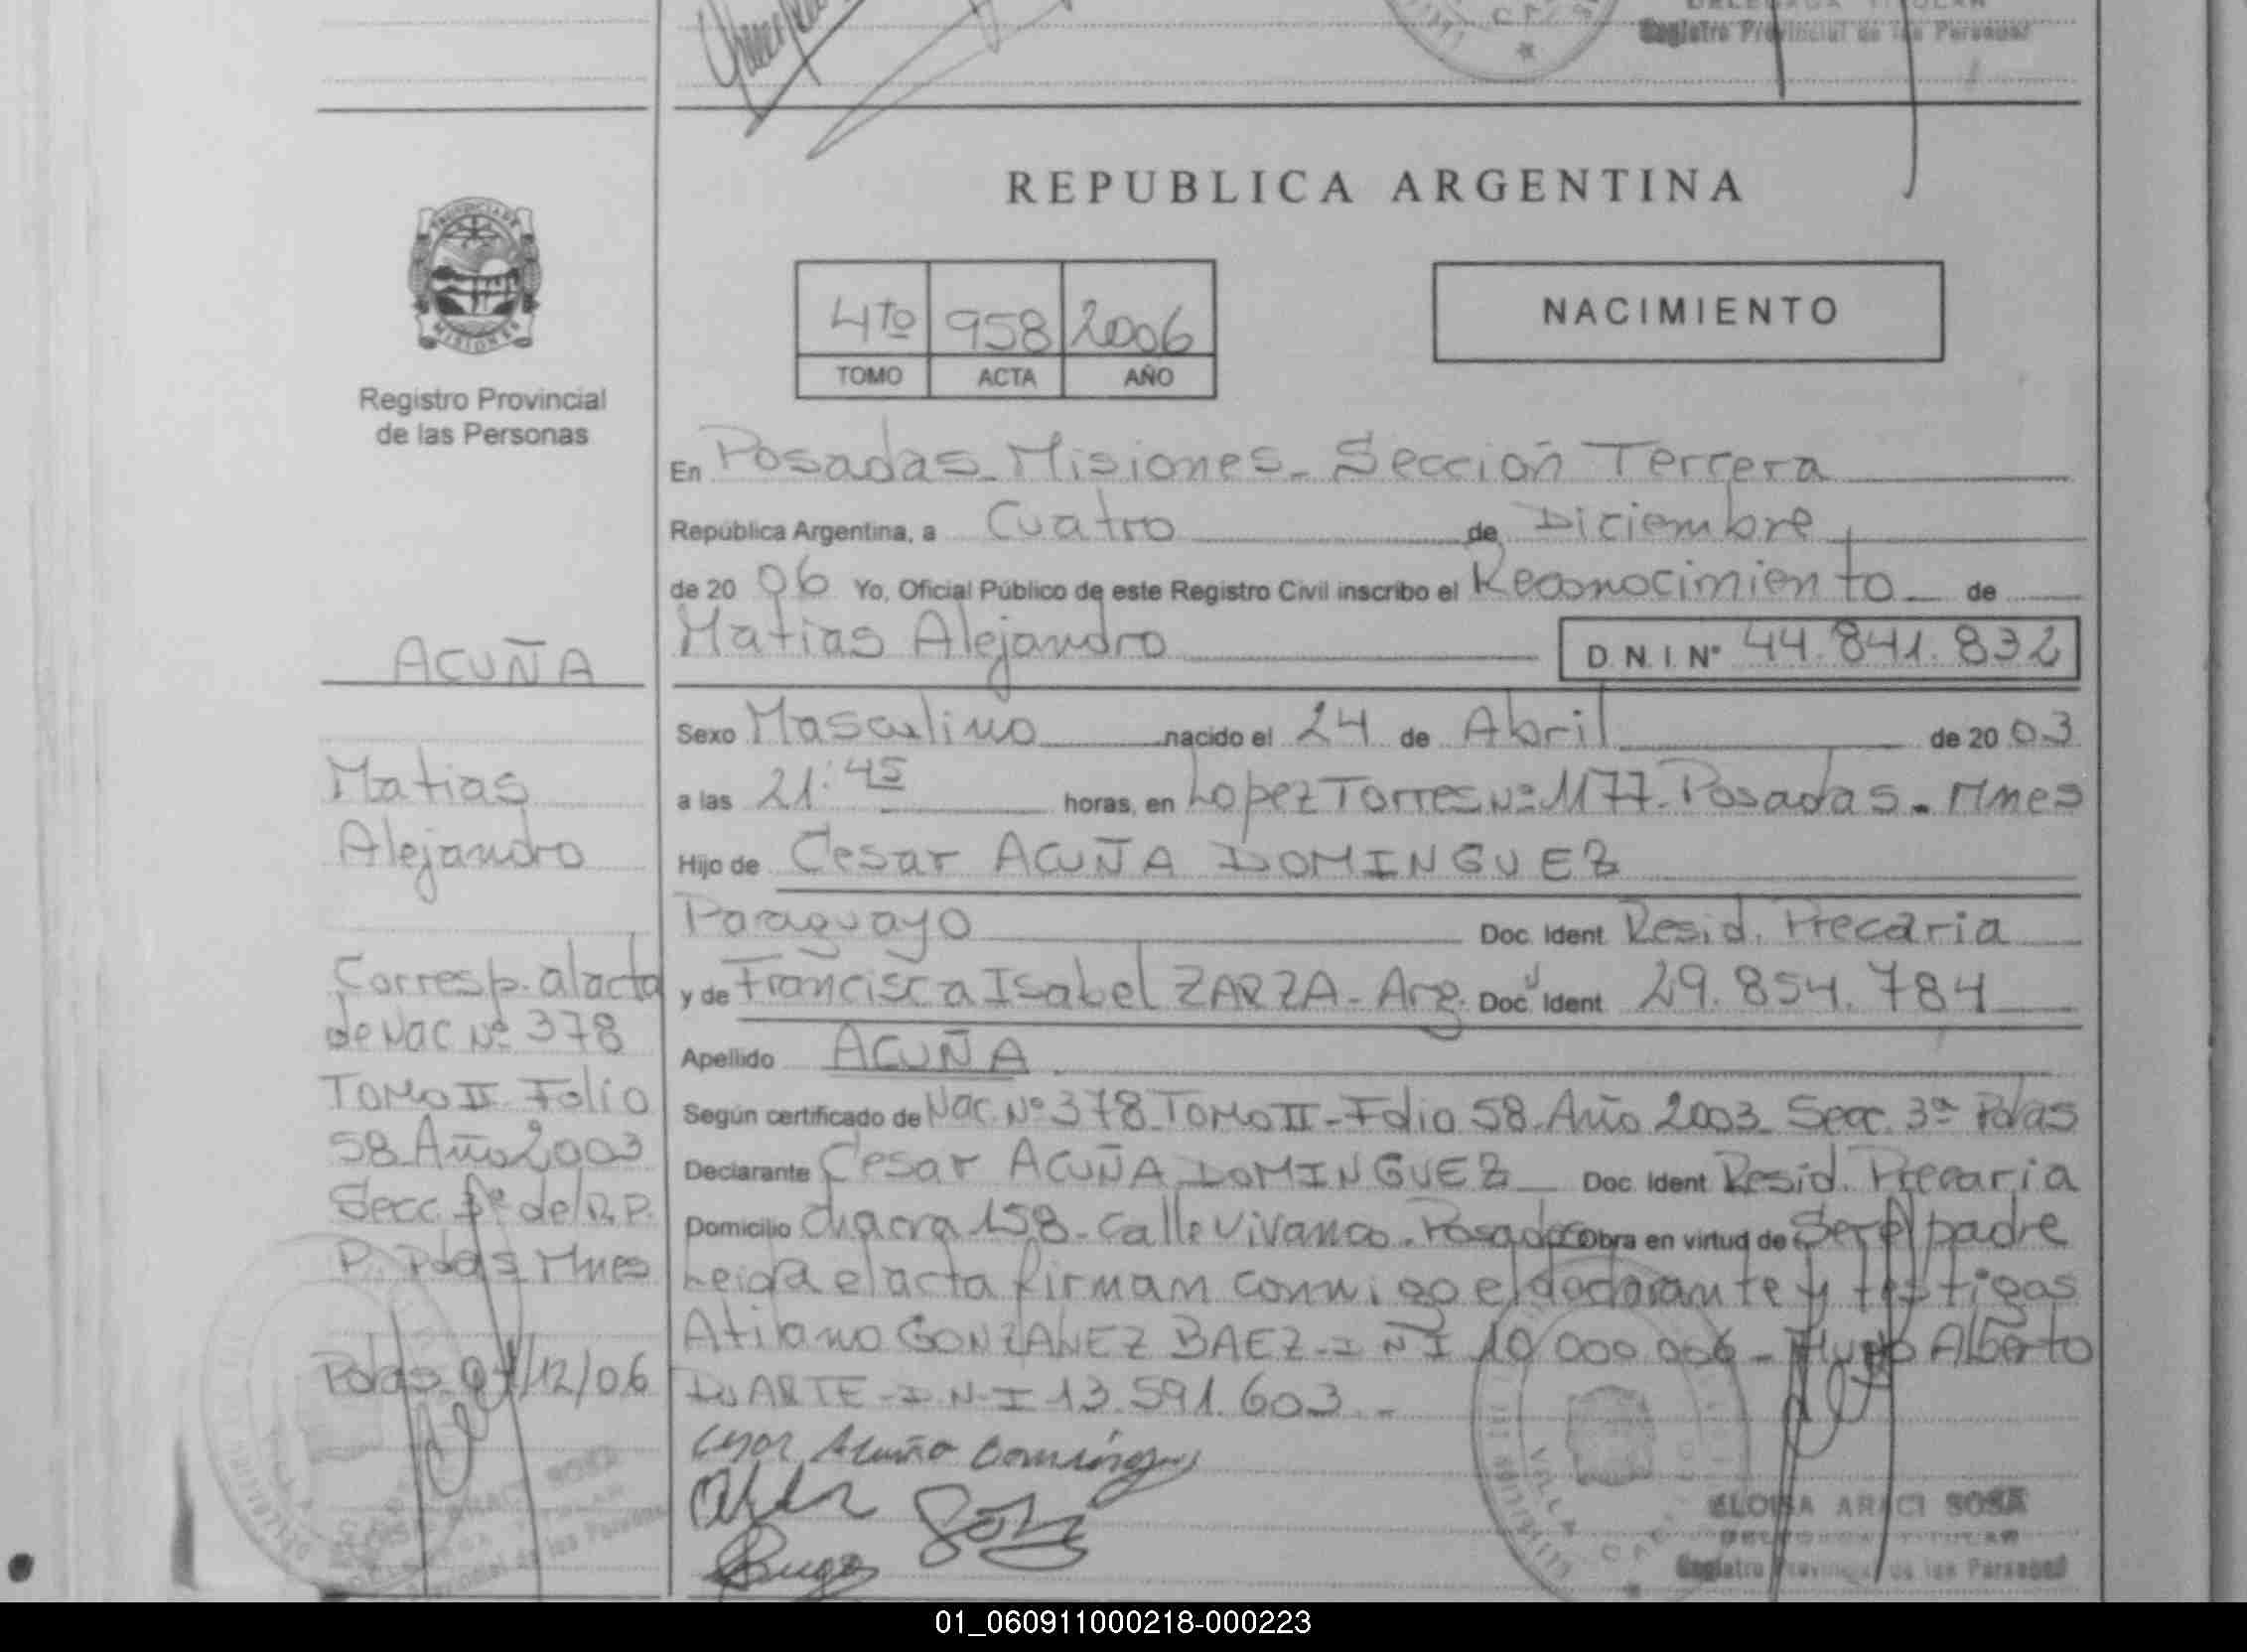 Registro Provincial de las Personas
REPUBLICA ARGENTINA
PROVINCIA DE
MISIONES
4to 958 2006
TOMO ACTA AÑO
NACIMIENTO
Registro Provincial
de las Personas
ACUÑA
Matias
Alejandro
Corresp. al acta
de Nac Nº 378
Tomo II Folio
58 Año 2003
Secc. 3ª del R.P.
P. Pdas Mnes
Pdas 04/12/06
En Posadas - Misiones - Sección Tercera
República Argentina, a Cuatro de Diciembre
de 20 06 Yo, Oficial Público de este Registro Civil inscribo el Reconocimiento de
Matias Alejandro D.N.I. Nº 44.841.832
Sexo Masculino nacido el 24 de Abril de 20 03
a las 21:45 horas, en Lopez Torres Nº 1177 - Posadas - Mnes
Hijo de Cesar ACUÑA DOMINGUEZ
Paraguayo Doc. Ident Resid. Precaria
y de Francisca Isabel ZARZA - Arg. Doc. Ident 29.854.784
Apellido ACUÑA
Según certificado de Nac. Nº 378 Tomo II - Folio 58 - Año 2003 - Secc. 3ª Pdas
Declarante Cesar ACUÑA DOMINGUEZ Doc. Ident Resid. Precaria
Domicilio Chacra 158 - Calle Vivanco - Posadas Obra en virtud de Ser el padre
Leida el acta firman conmigo el declarante y testigos
Atilano GONZALEZ BAEZ - DNI 10 000 006 - Hugo Alberto
DUARTE - D.N.I 13.591.603 -
Cesar Acuña Domínguez
ELOISA ARACI SOSA
DELEGADA TITULAR
Registro Provincial de las Personas
01_060911000218-000223